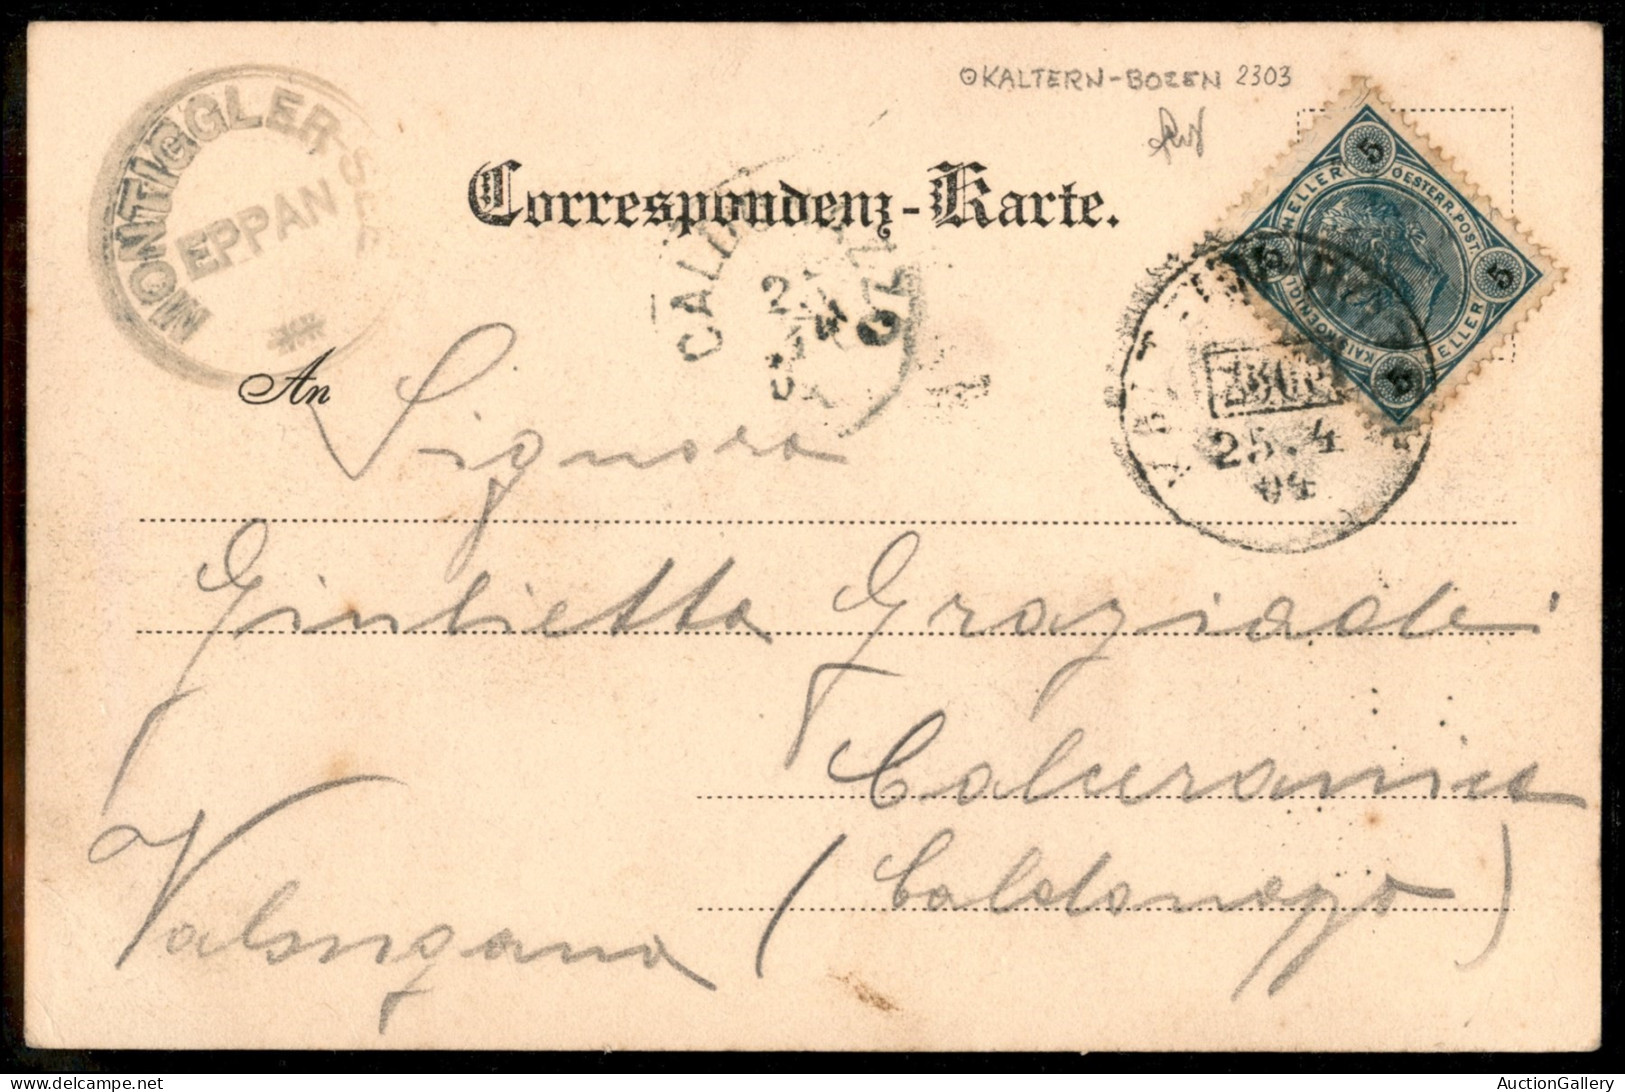 ⊙KALTERN-BOZEN 2303
MONTIGGLER-SEE
EPPAN
Correspondenz-Karte.
5 HELLER 5 OESTERR. POST. 5 HELLER 5
25.4
04
An
Signora
Giulietta Graziadei
Calceranica
Valsugana (Caldonazzo)
AuctionGallery